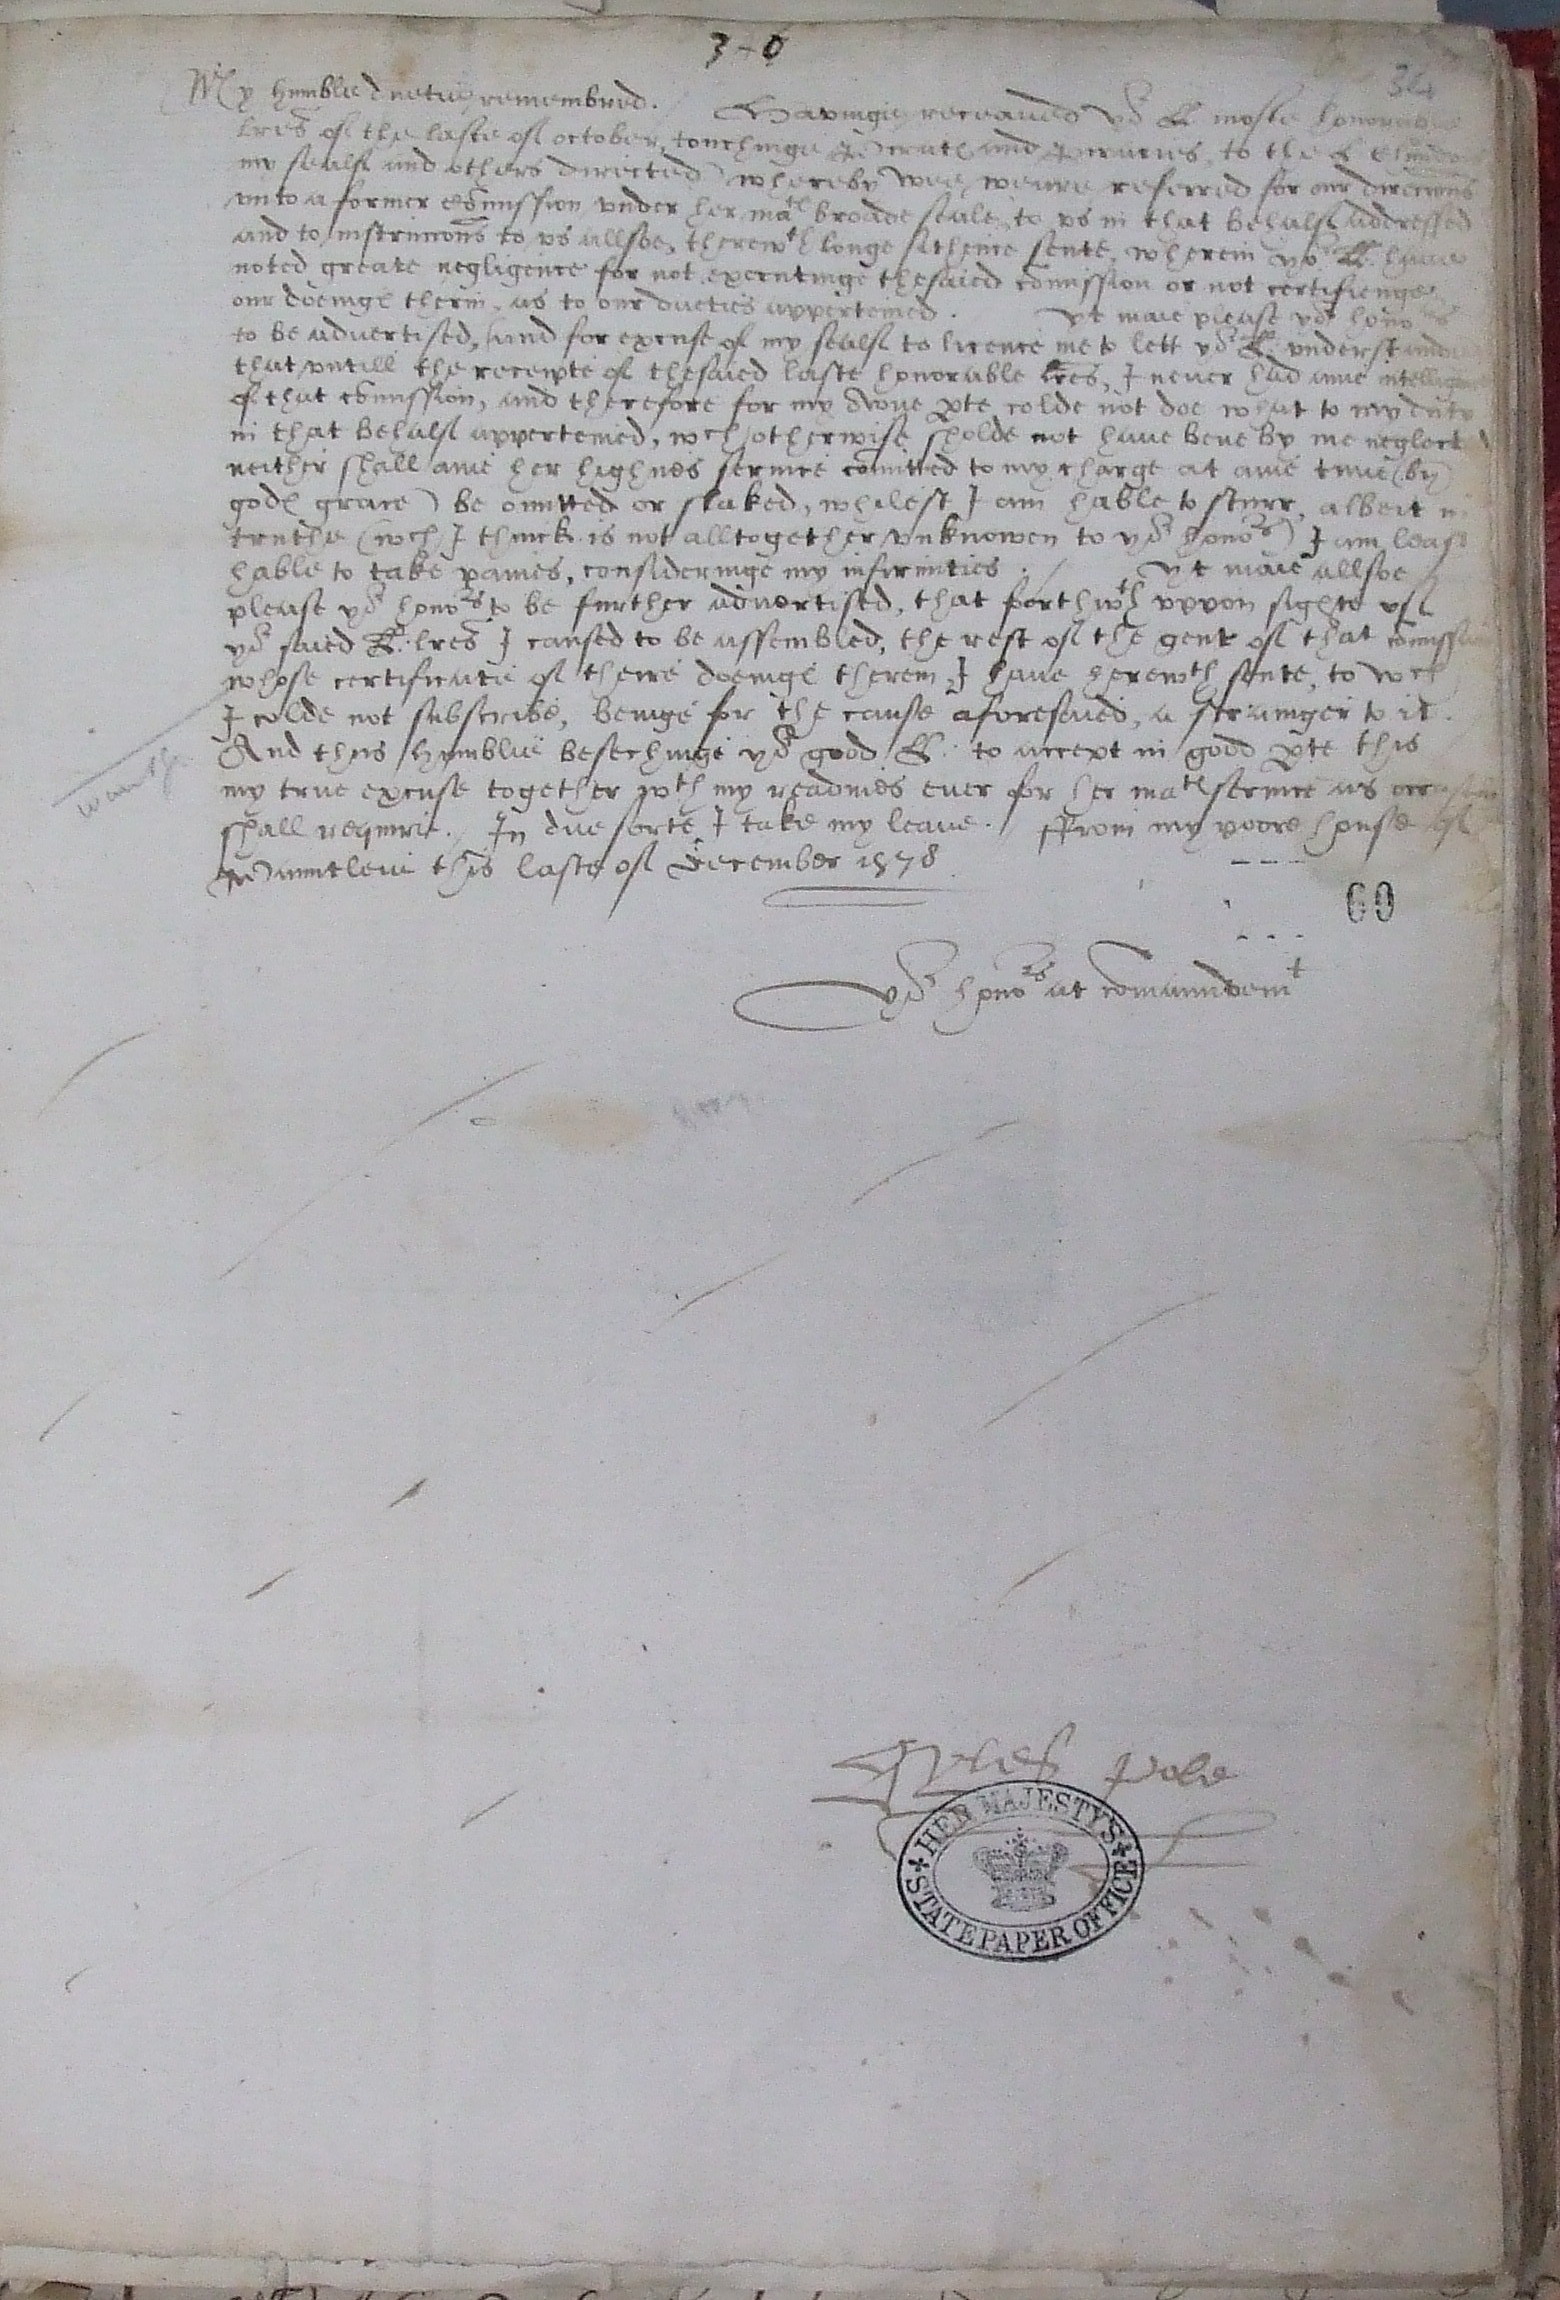 3-0
34
My humblie duetie remembred. / Havinge receaued yor LL moste honorable
lres of the laste of october, touchinge Pierats and Piracies, to the L Chandos
my sealf and others directed) whereby wee weare referred for our direccions
vnto a former comission vnder her mats broade seale, to vs in that behalf addressed
and to instruccons to vs allsoe, therewth longe sithence sente, wherein yor LL. haue
noted greate negligence for not executinge thesaied comission or not certifienge
our doeings therin, as to our dueties apperteined. yt maie please yor honors
to be aduertised, (and for excuse of my sealf to licence me to lett yor LL. understande
that vntill the receipte of thesaied laste honorable lres, I neuer had anie intelligence
of that comission, and therefore for my owne pte colde not doe what to my duty
in that behalf apperteined, wch otherwise sholde not haue bene by me neglected
neither shall anie her highnes seruice comitted to my charge at anie time (by
gods grace) be omitted or slaked, whilest I am hable to sturr, albeit in
truthe (wch I thinck is not alltogether vnknowen to yor honors) I am least
hable to take paines, consideringe my infirmities. / yt maie allsoe
please yor honors to be further aduertised, that forthwth vppon sighte of
yor saied LL. lres I caused to be assembled, the rest of the gent of that comission
whose certificatie of theire doeings therein, I haue herewth sente, to wch
I colde not subscribe, beinge for the cause aforesaied, a straunger to it.
And thus humblie besechinge yor good LL. to accept in good pte this
my true excuse together wth my readines euer for her mats seruice as occasion
shall require. / In due sorte I take my leaue. / From my poore house of
this laste of December 1578
69
yor honors at comaundemt
Gyles Pole
HER MAJESTY'S
STATE PAPER OFFICE